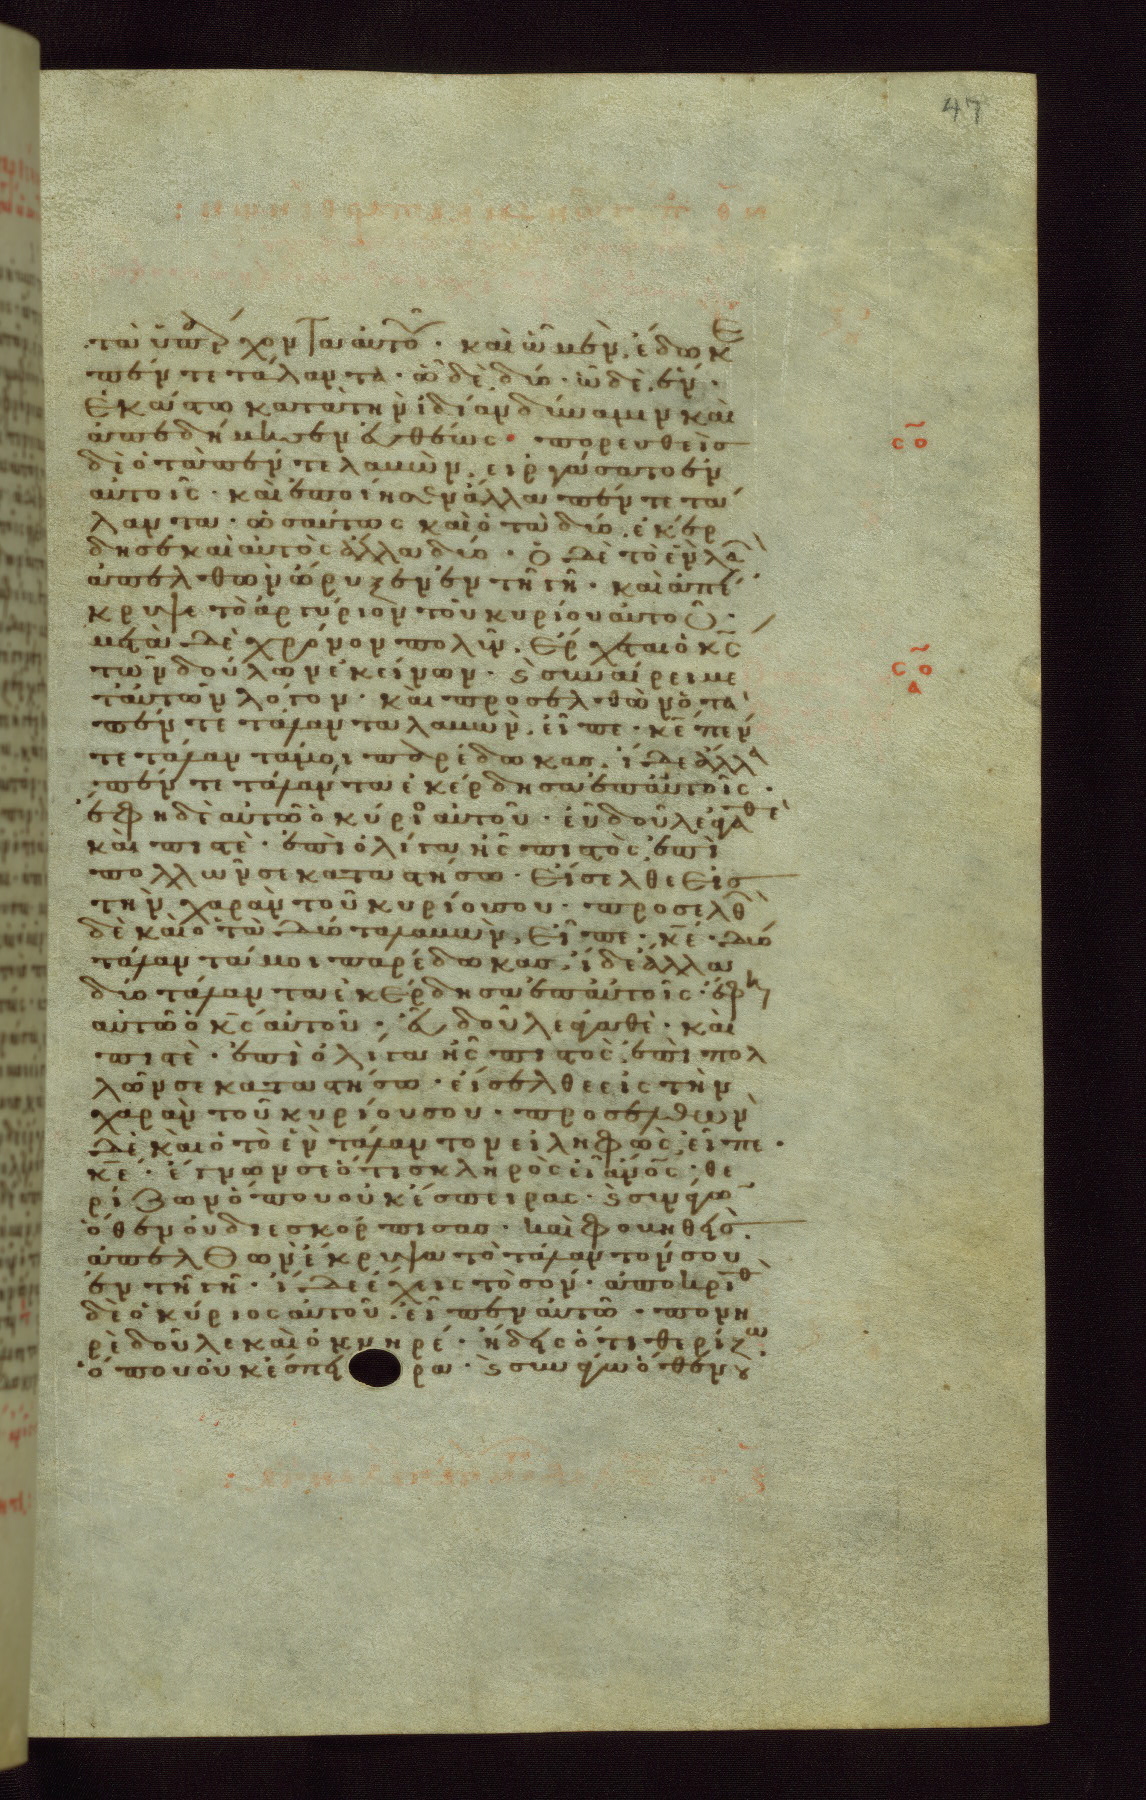 47
τὰ ὑπάρχοντα αὐτοῦ · καὶ ὧ μὲν ἔδωκε
πέντε τάλαντα · ὧ δὲ δύο · ὧ δὲ ἕν ·
ἑκάστω κατὰ τὴν ἰδίαν δύναμιν καὶ
ἀπεδήμησεν εὐθέως · πορευθεὶς
δὲ ὁ τὰ πέντε λαβὼν, εἰργάσατο ἐν
αὐτοῖς · καὶ ἐποίησεν ἄλλα πέντε τά
λαντα · ὡσαύτως καὶ ὁ τὰ δύο, ἐκέρ
δησε καὶ αὐτὸς ἄλλα δύο · ὁ δὲ τὸ ἓν λα
ἀπελθὼν ὤρυξεν ἐν τῆ γῆ · καὶ ἀπέ
κρυψε τὸ ἀργύριον τοῦ κυρίου αὐτοῦ ·
μετὰ δὲ χρόνον πολὺν, ἔρχεται ὁ κς
τῶν δούλων ἐκείνων · ϗ συναίρει με
τ' αὐτῶν λόγον · καὶ προσελθὼν ὁ τὰ
πέντε τάλαντα λαβὼν, εἶπε · κε πέν
τε τάλαντά μοι παρέδωκας, ἴδε ἄλλα
πέντε τάλαντα ἐκέρδησα ἐπ' αὐτοῖς ·
ἔφη δὲ αὐτῶ ὁ κύριος αὐτοῦ · εὖ δοῦλε ἀγαθὲ
καὶ πιστὲ · ἐπὶ ὀλίγα ἦς πιστὸς, ἐπὶ
πολλῶν σε καταστήσω · εἴσελθε εἰς
τὴν χαρὰν τοῦ κυρίου σου · προσελθ
δὲ καὶ ὁ τὰ δύο τάλα λαβὼν, εἶπε · κε · δύο
τάλαντά μοι παρέδωκας, ἴδε ἄλλα
δύο τάλαντα ἐκέρδησα ἐπ' αὐτοῖς · ἔφη
αὐτῶ ὁ κς αὐτοῦ · εὖ δοῦλε ἀγαθὲ · καὶ
πιστὲ · ἐπὶ ὀλίγα ἦς πιστὸς, ἐπὶ πολ
λῶν σε καταστήσω · εἴσελθε εἰς τὴν
χαρὰν τοῦ κυρίου σου · προσελθὼν
δὲ καὶ ὁ τὸ ἓν τάλαντον εἰληφὼς, εἶπε ·
κε · ἔγνων σε ὅτι σκληρὸς εἶ ἄνος · θε
ρίζων ὅπου οὐκ ἔσπειρας · ϗ συνάγων
ὅθεν οὐ διεσκόρπισας · καὶ φοβηθεὶς
ἀπελθὼν ἔκρυψα τὸ τάλαντόν σου
ἐν τῆ γῆ · ἴδε ἔχεις τὸ σόν · ἀποκριθ
δὲ ὁ κύριος αὐτοῦ, εἶπεν αὐτῶ · πονη
ρὲ δοῦλε καὶ ὀκνηρέ · ἤδεις ὅτι θερίζω
ὅπου οὐκ ἔσπειρα · ϗ συνάγω ὅθεν ου
σο
σο
α